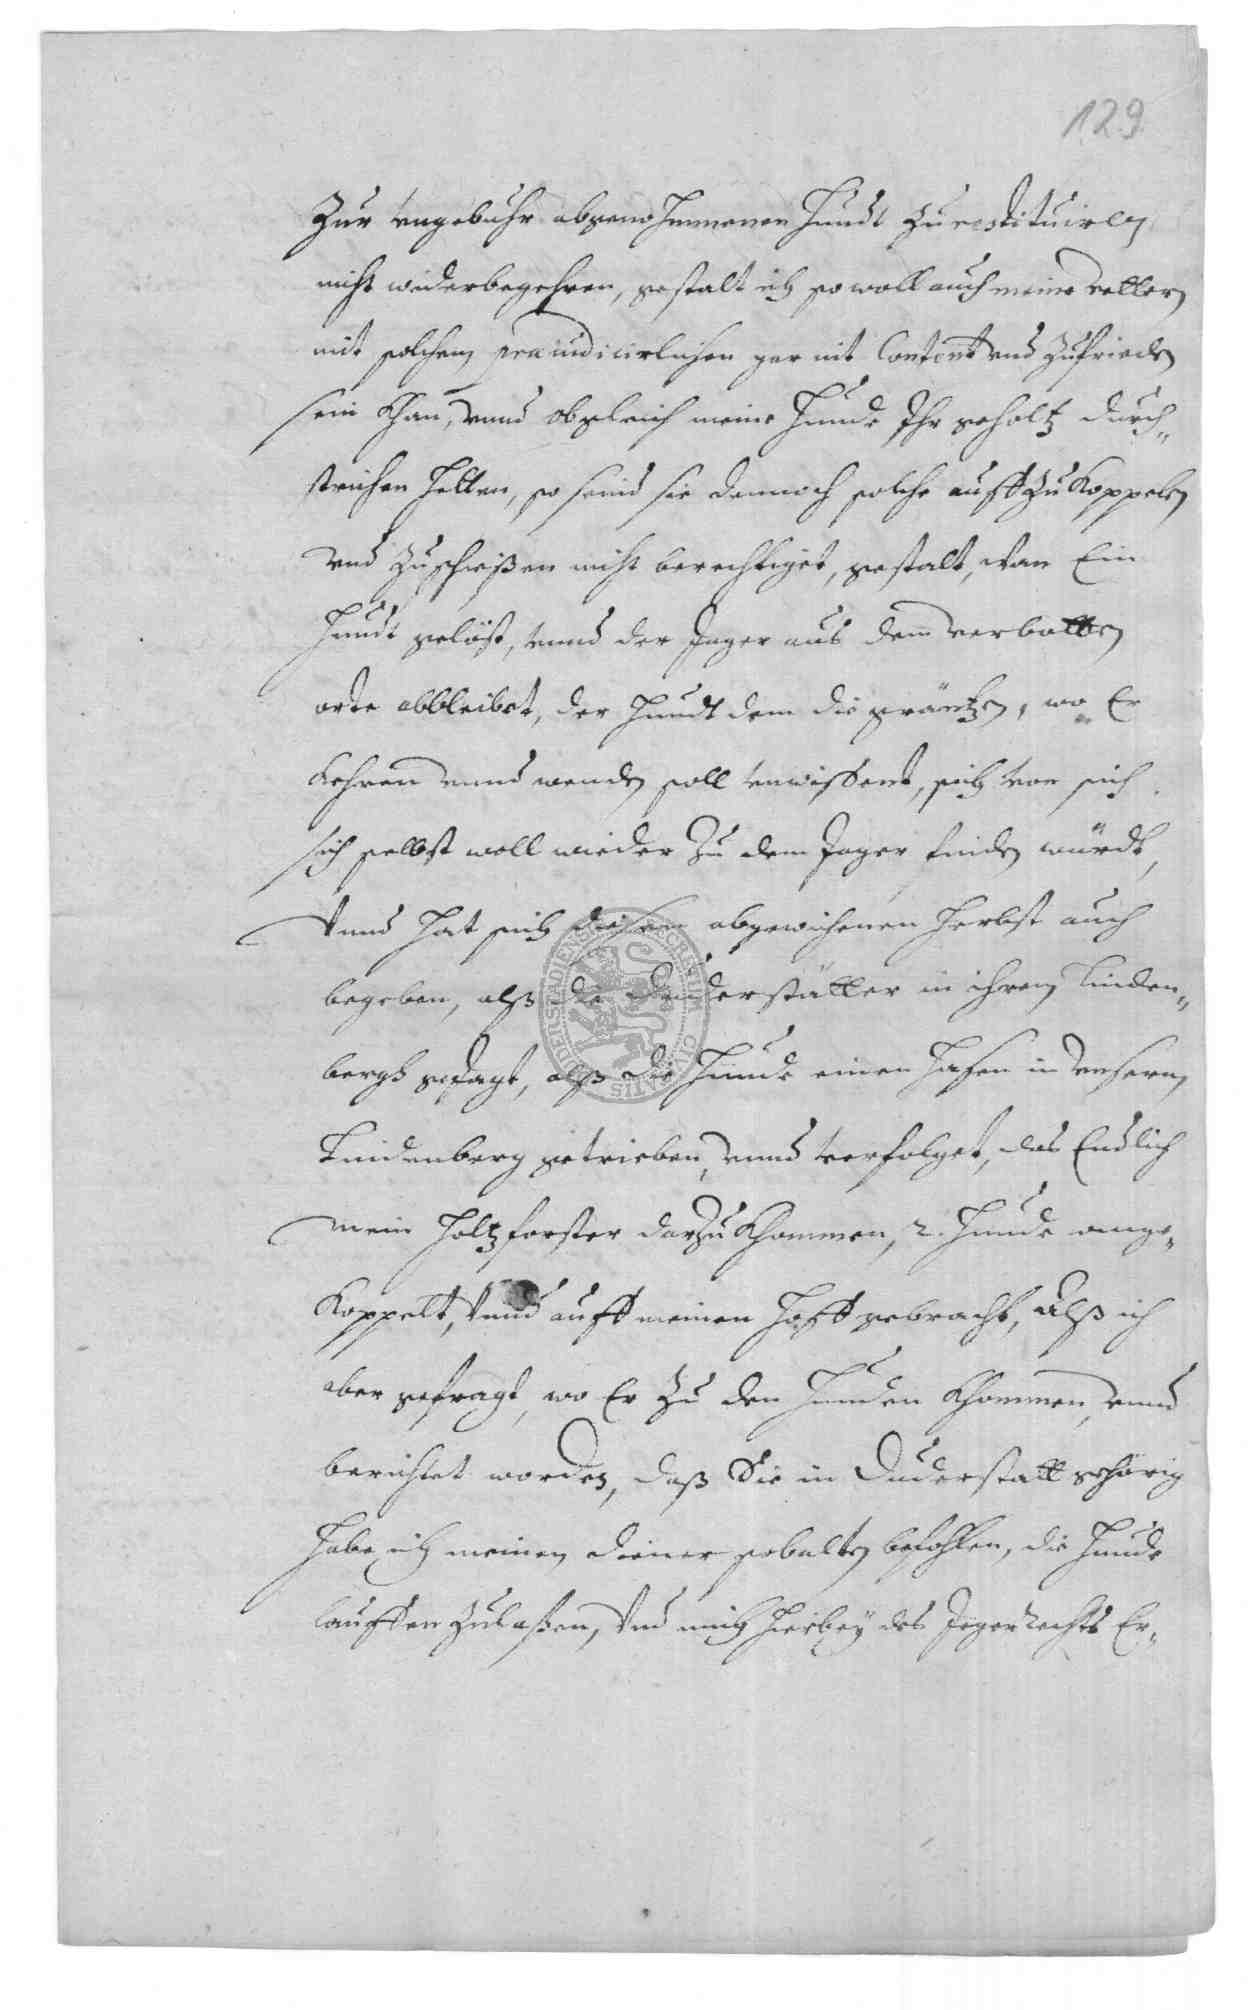 129
Zur ungebuhr abgenohmmenen Hundt zu restituiren
nicht widerbegehren, gestalt ich so woll auch meine vettern
mit solchem præiudicirlichen gar nit Content vnd zufrieden
sein Khan, vnnd obgleich meine Hunde Ihr geholtz durch„
strichen hetten, so seind sie dennoch solche auffzukoppelen
vnd zuschießen nicht berechtiget, gestalt, wan Ein
Hundt gelöst, vnnd der Jager aus dem verbotten
orte abbleibet, der Hundt dem die gräntzen, wo Er
Kehren vnnd wenden soll vnwissent, sich von sich
sich selbst woll wieder zu dem Jager finden würdt,
Vnnd hat sich diesen abgewichenen Herbst auch
begeben, alß die Duderstätter in ihrem Linden„
bergh gejagt, alß die Hunde einen Hasen in vnsern
Lindenberg getrieben, vnnd verfolget, das Endlich
mein Holtzforster darzu Khommen, 2. Hunde ange„
Koppelt, Vnnd auff meinen Hoff gebracht, Alß ich
aber gefragt, wo Er zu den Hunden Khommen, vnnd
berichtet worden, daß Sie in Duderstatt gehörig
habe ich meinen diener sobalten befohlen, die Hunde
lauffen zulaßen, Vnd mich hierbey des Jegerrechts Er„
SECRETUM CIVITATIS DUDERSTADIENSIS